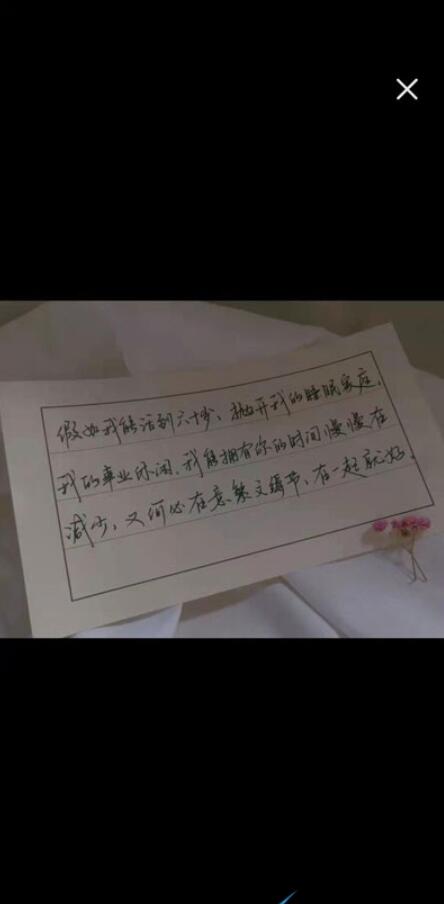 假如我能活到六十岁、抛开我的睡眠家庭、
我的事业休闲、我能拥有你的时间慢慢在
减少、又何必在意繁文缛节、在一起就好、